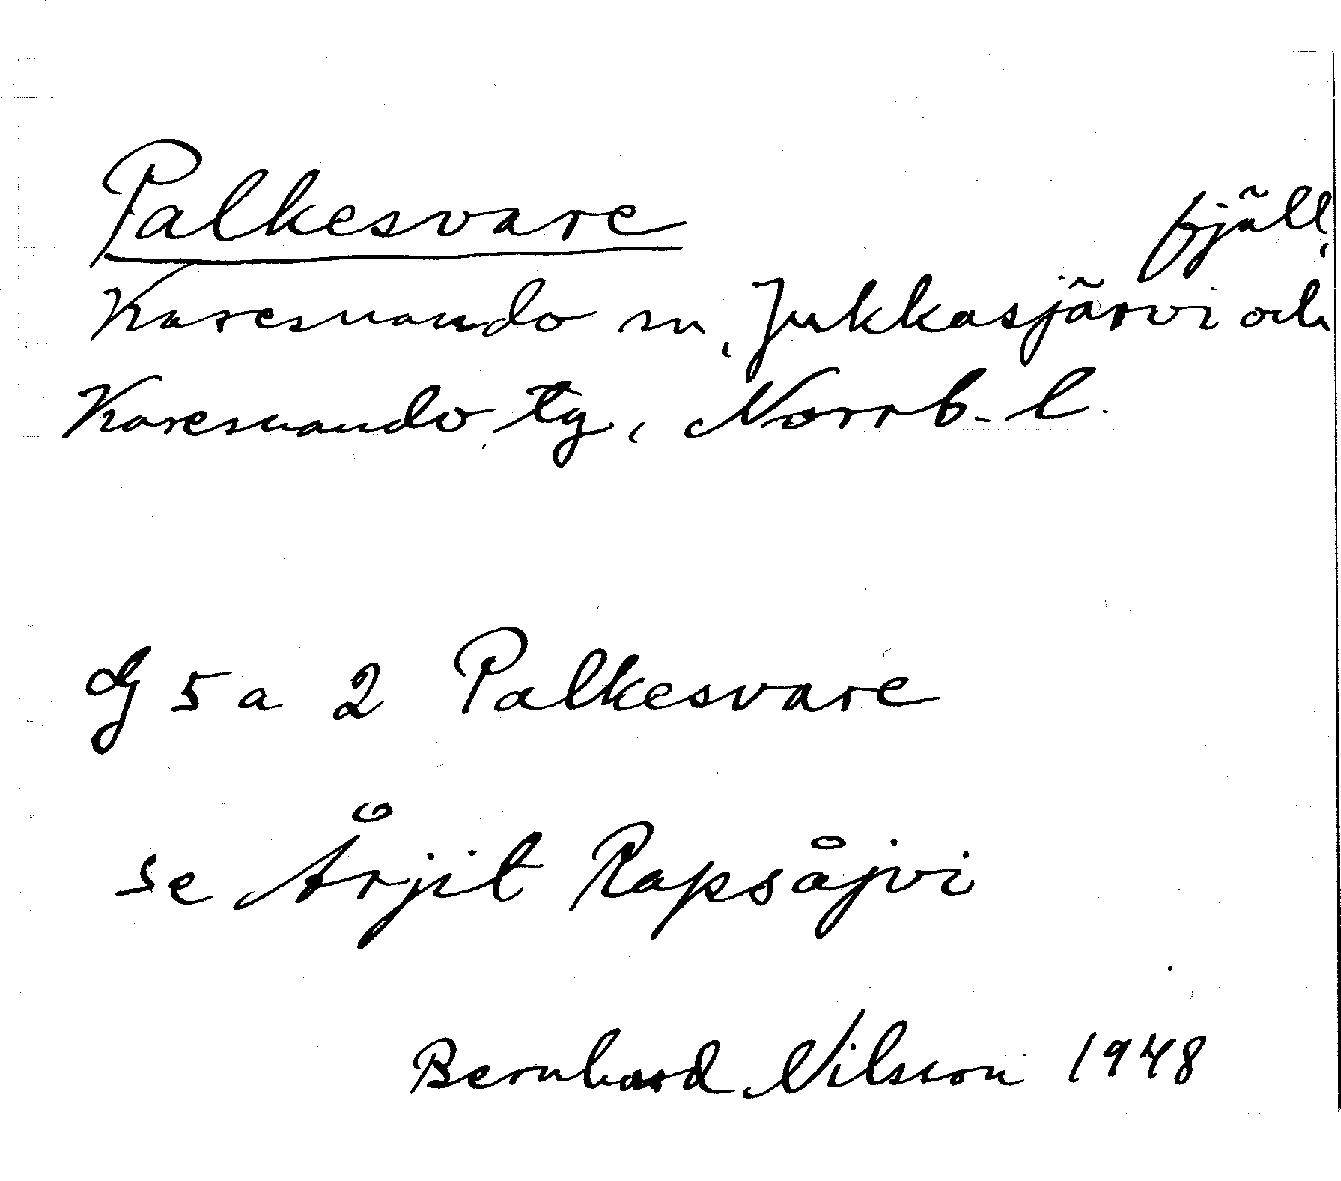 Palkesvare fjäll,
Karesuando sn, Jukkasjärvi och
Karesuando tg, Norrb. l.
dg 5 a 2 Palkesvare
se Årjit Rapsåjvi
Bernhard Nilsson 1948